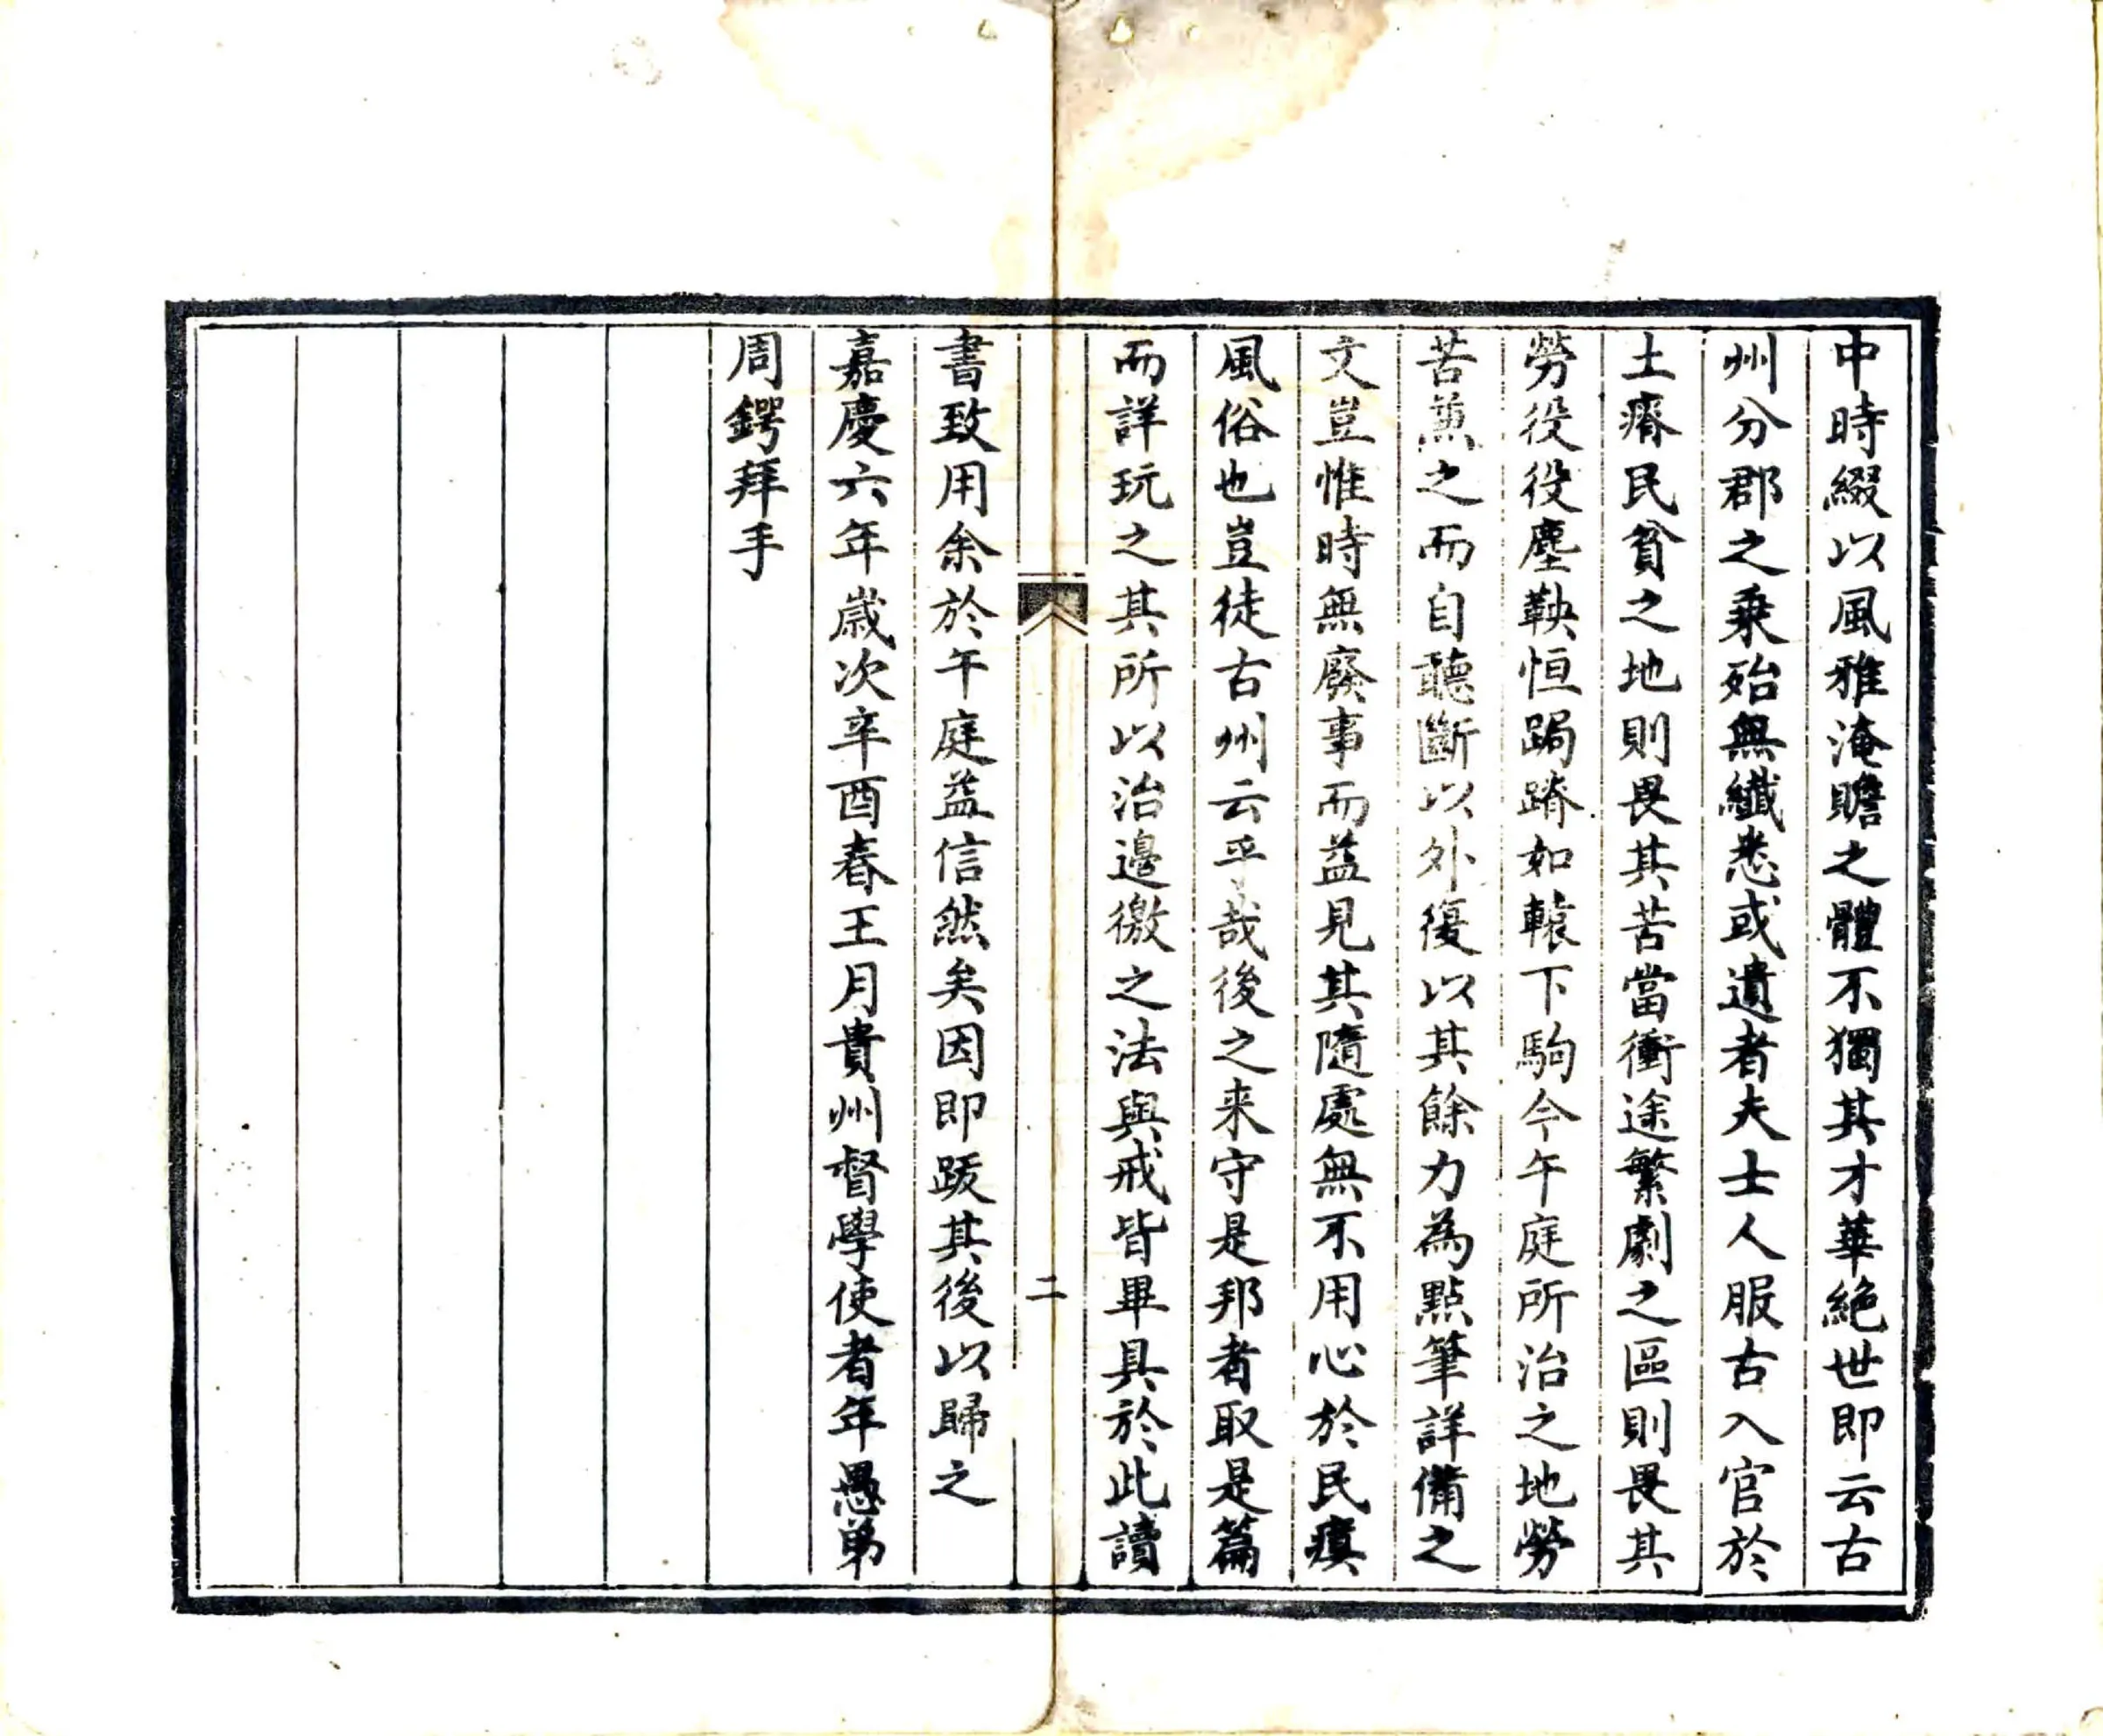 中時綴以風雅淹贍之體不獨其才華絕世即云古
州分郡之乘殆無纖悉或遺者夫士人服古入官於
土瘠民貧之地則畏其苦當衝途繁劇之區則畏其
勞役役塵鞅恒跼蹐如轅下駒今午庭所治之地勞
苦蒸之而自聽斷以外復以其餘力為點筆詳備之
文豈惟時無廢事而益見其隨處無不用心於民瘼
風俗也豈徒古州云乎哉後之来守是邦者取是篇
而詳玩之其所以治邊徼之法與戒皆畢具於此讀
二
書致用余於午庭益信然矣因即跋其後以歸之
嘉慶六年歲次辛酉春王月貴州督學使者年愚弟
周鍔拜手